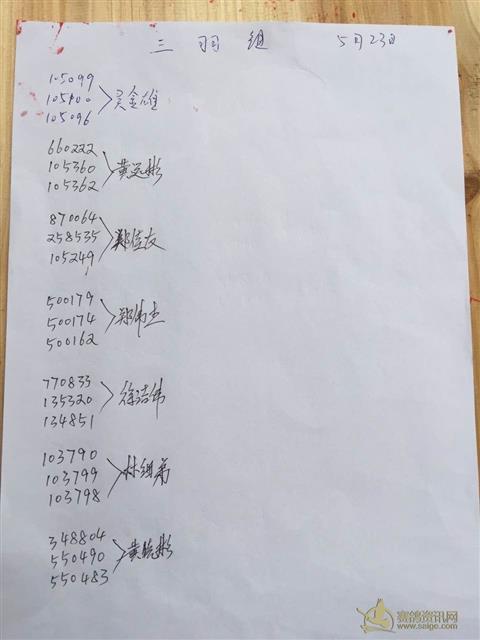 三羽组 5月23日
105099
105100 吴金雄
105096
660222
105360 黄远彬
105362
870064
258535 郑佳友
105249
500179
500174 郑伟杰
500162
770833
135320 徐洁伟
134851
103790
103799 林组弟
103798
348804
550490 黄晓彬
550483
赛鸽资讯网
www.saige.com